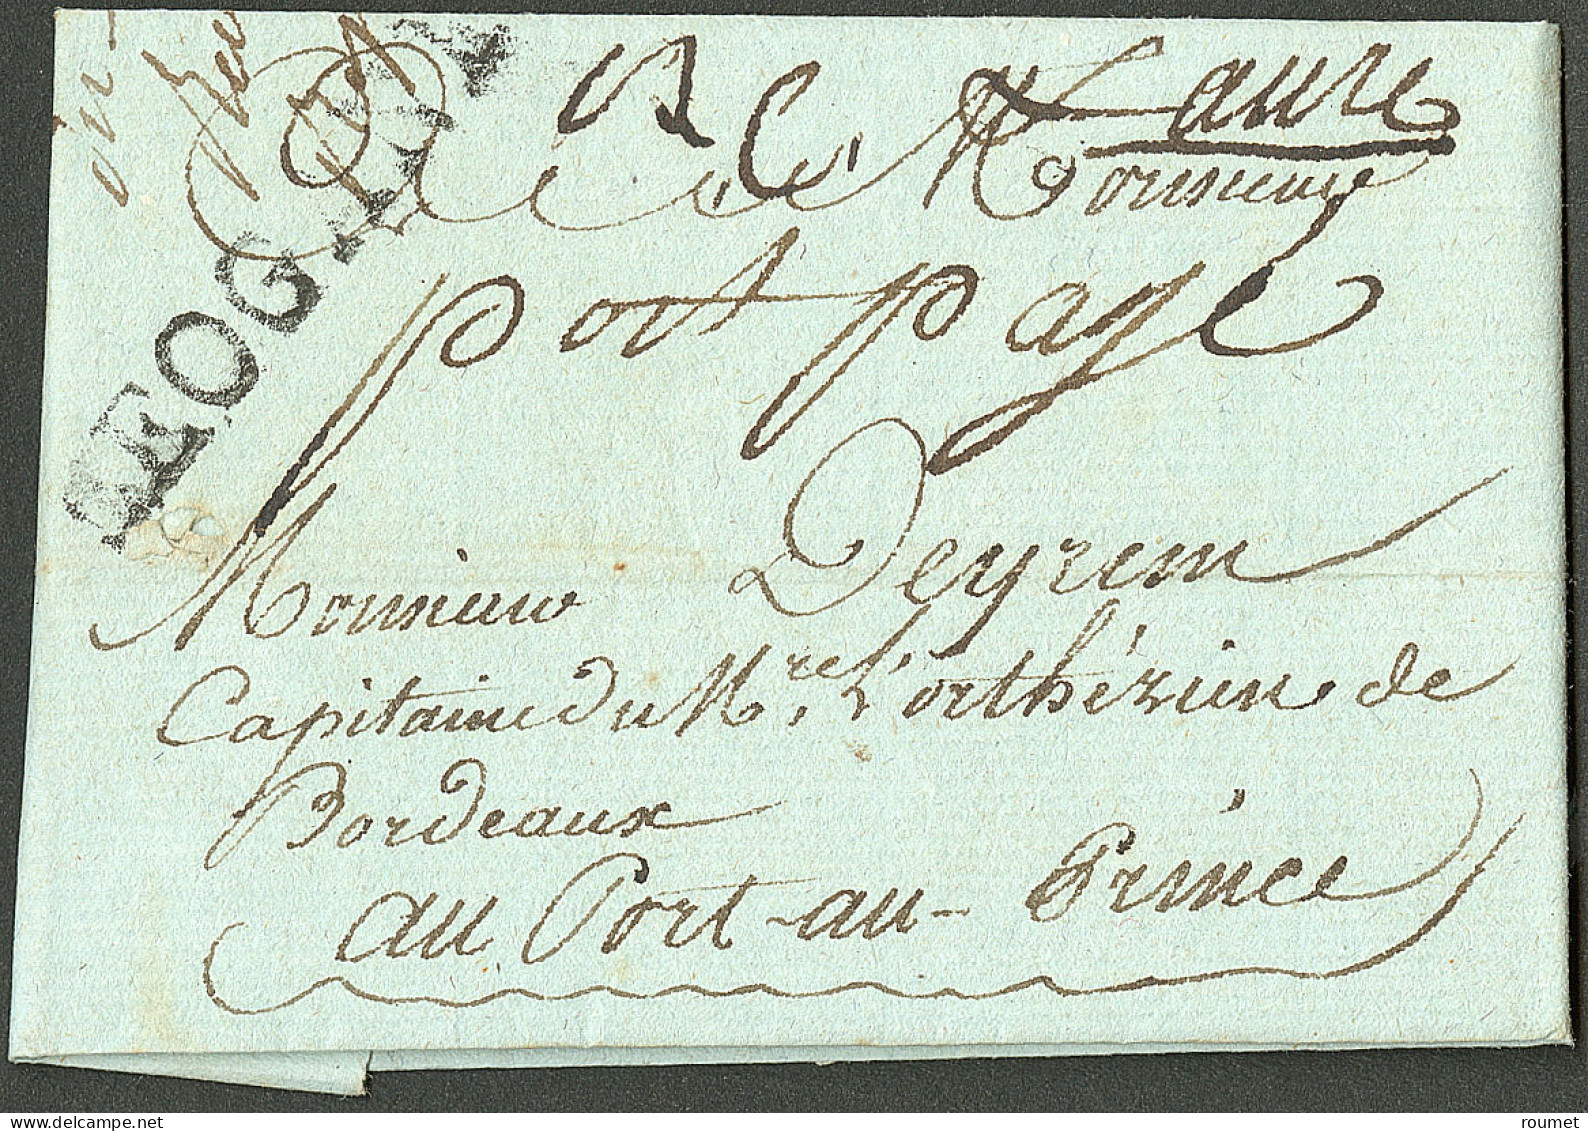 LEOGANE
Laure
Monsieur
port payé
Monsieur Deyrem
Capitaine du N.re L'orthézien de
Bordeaux
au Port-au-Prince
roumet